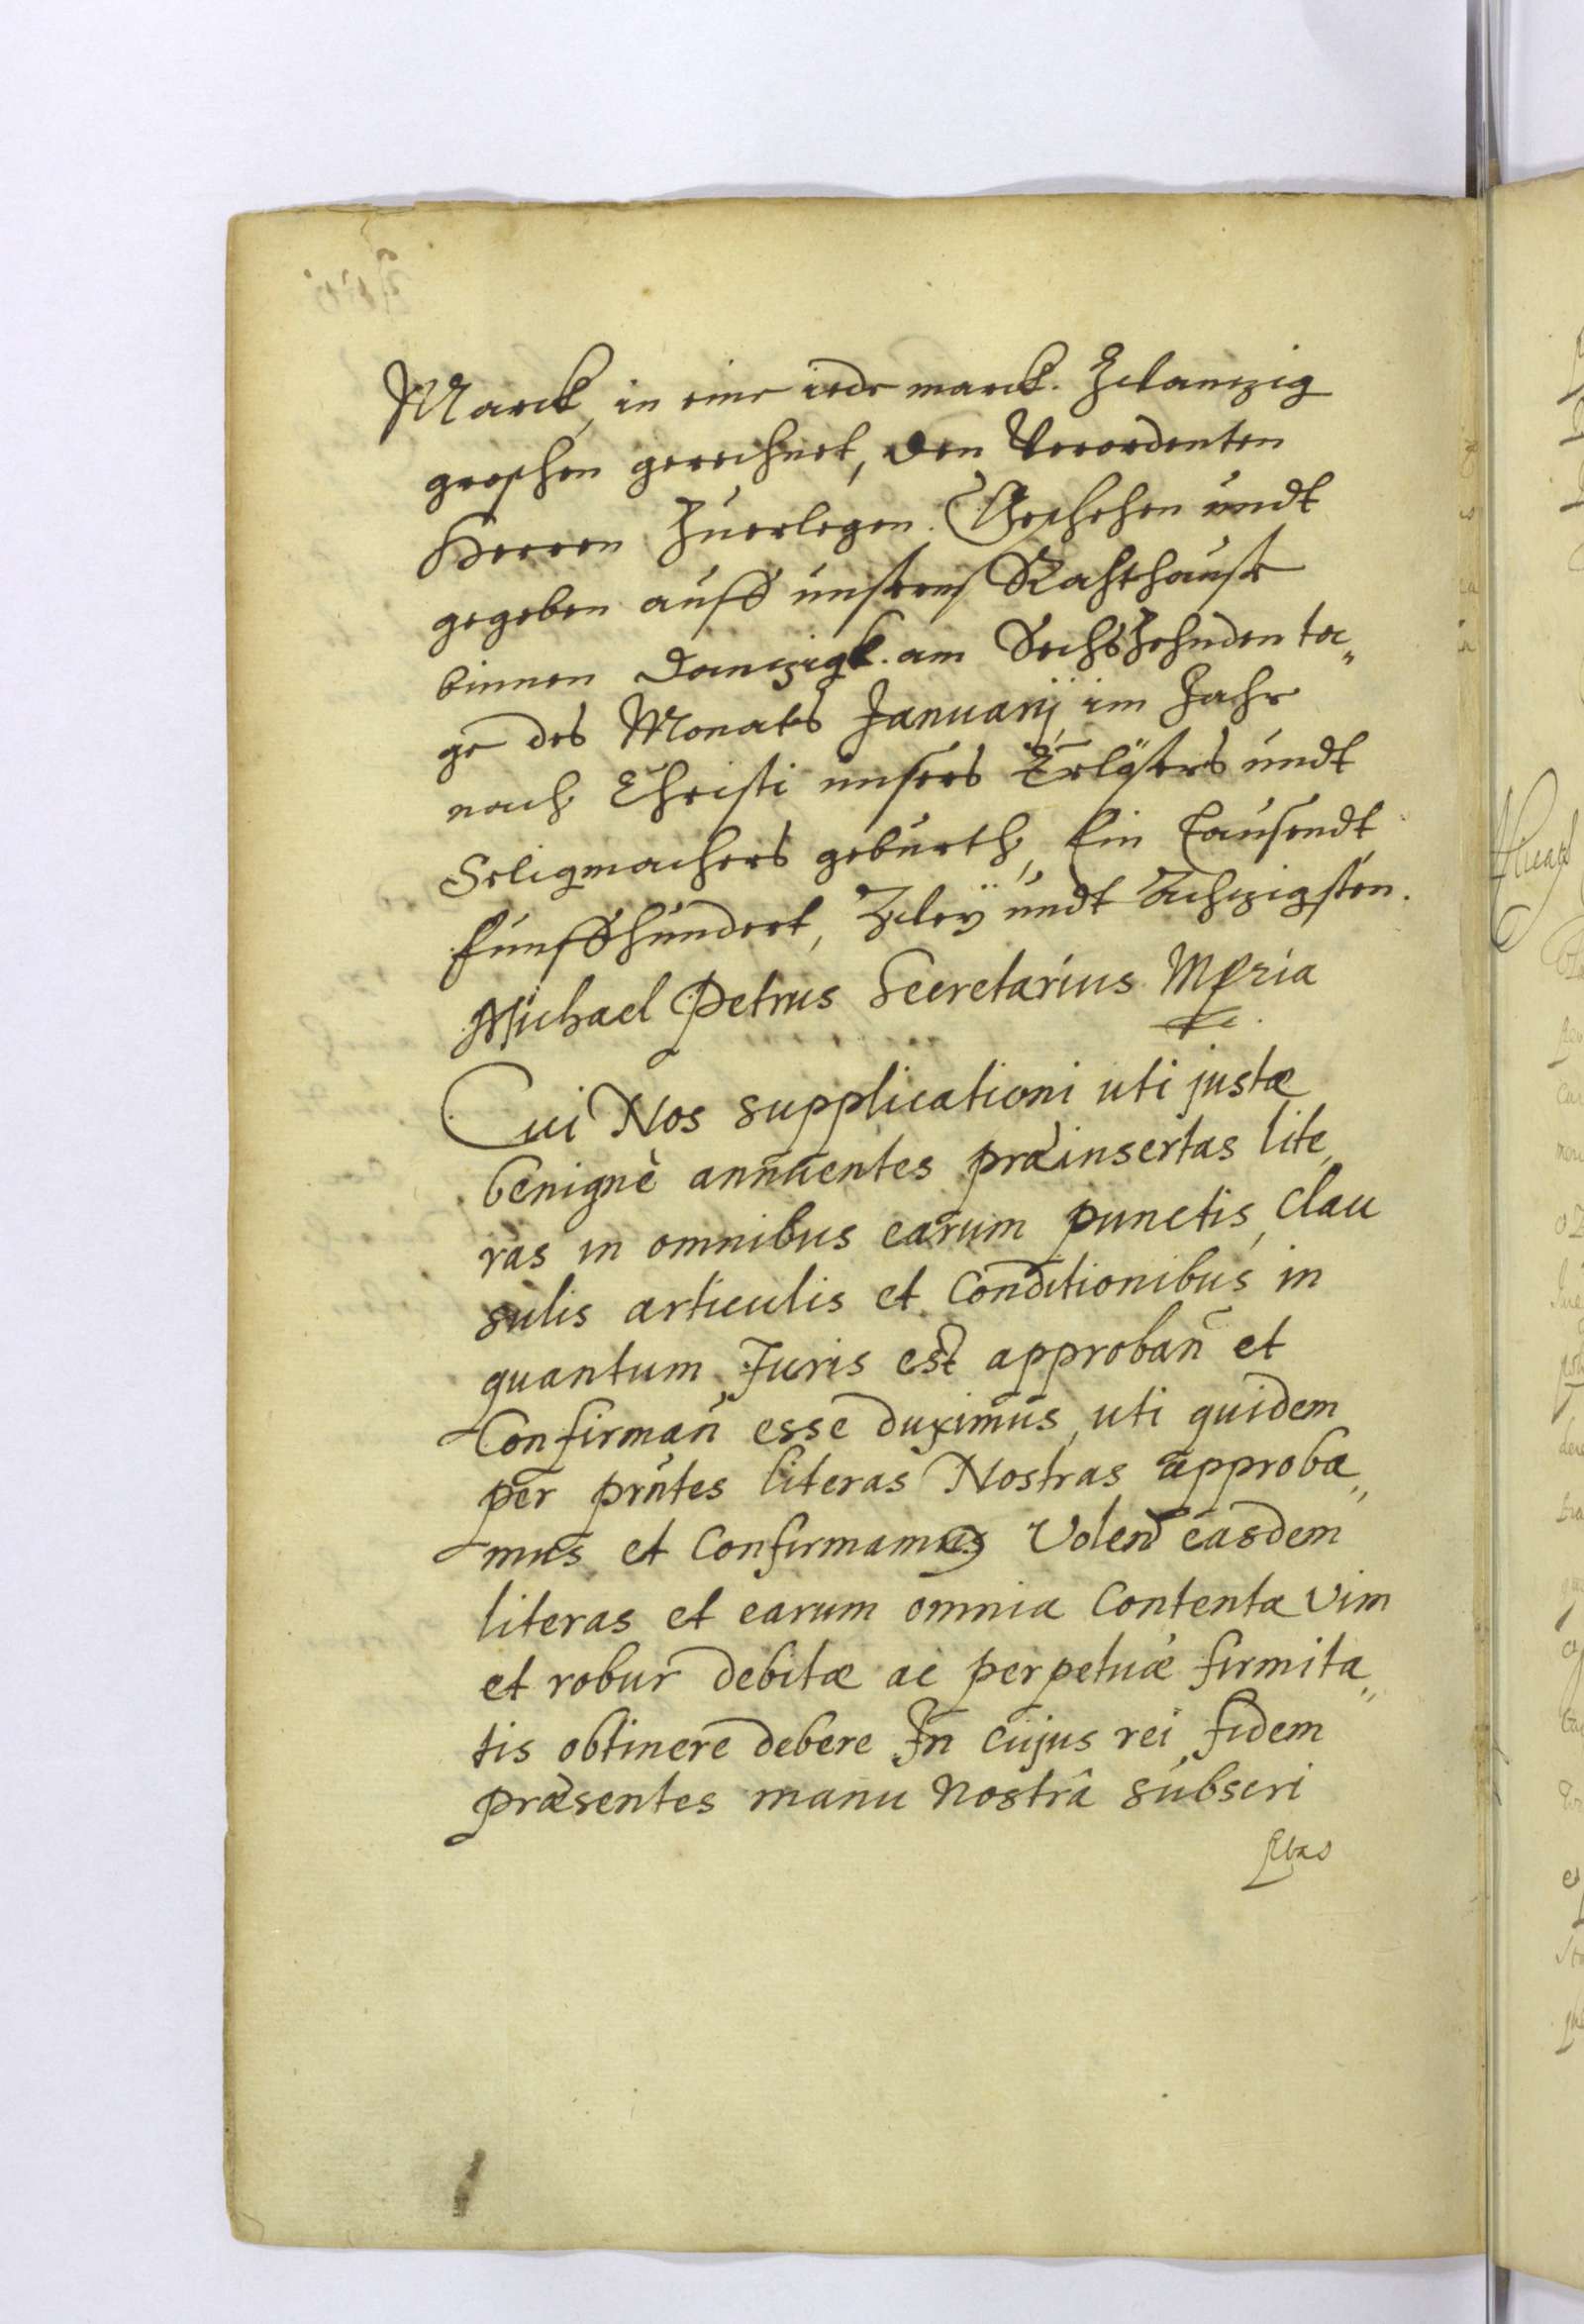 Marck, in eine iede marck. Zwanzig
groschen gerechnet, den Verordenten
Herren Zuerlegen. Geschehen undt
gegeben auff unserem Rahthause
binnen Danzigk. am Sechszehnden ta„
ge des Monats Januarij im Jahr
nach Christi unsers Erlösers undt
Seligmachers geburth, Ein Tausendt
funffhundert, Zwey undt Achzigsten.
Michael Petrus Secretarius Mpria
Cui Nos supplicationi uti justæ
benignè annuentes præinsertas lite„
ras in omnibus earum punctis, clau
sulis articulis et Conditionibus in
quantum Juris est approban̄ et
Confirman̄ esse duximus, uti quidem
per prn̄tes literas Nostras approba„
mus et Confirmamus Volen easdem
literas et earum omnia Contenta vim
et robur debitæ ac perpetuæ firmita„
tis obtinere debere In cujus rei fidem
præsentes manu nostrâ subscri